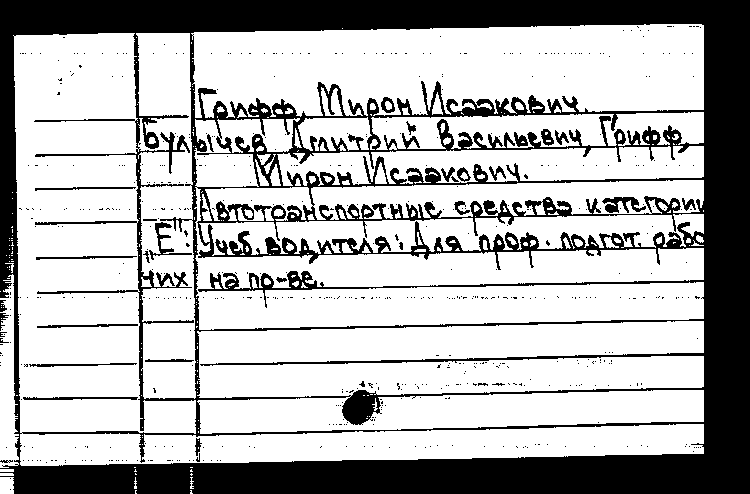 Грифф, Мирон Исаакович.
Булычев Дмитрий Васильевич, Грифф,
Мирон Исаакович.
Автотранспортные средства категории
„Е": Учеб. водителя: Для проф. подгот. рабо
чих на пр-ве.